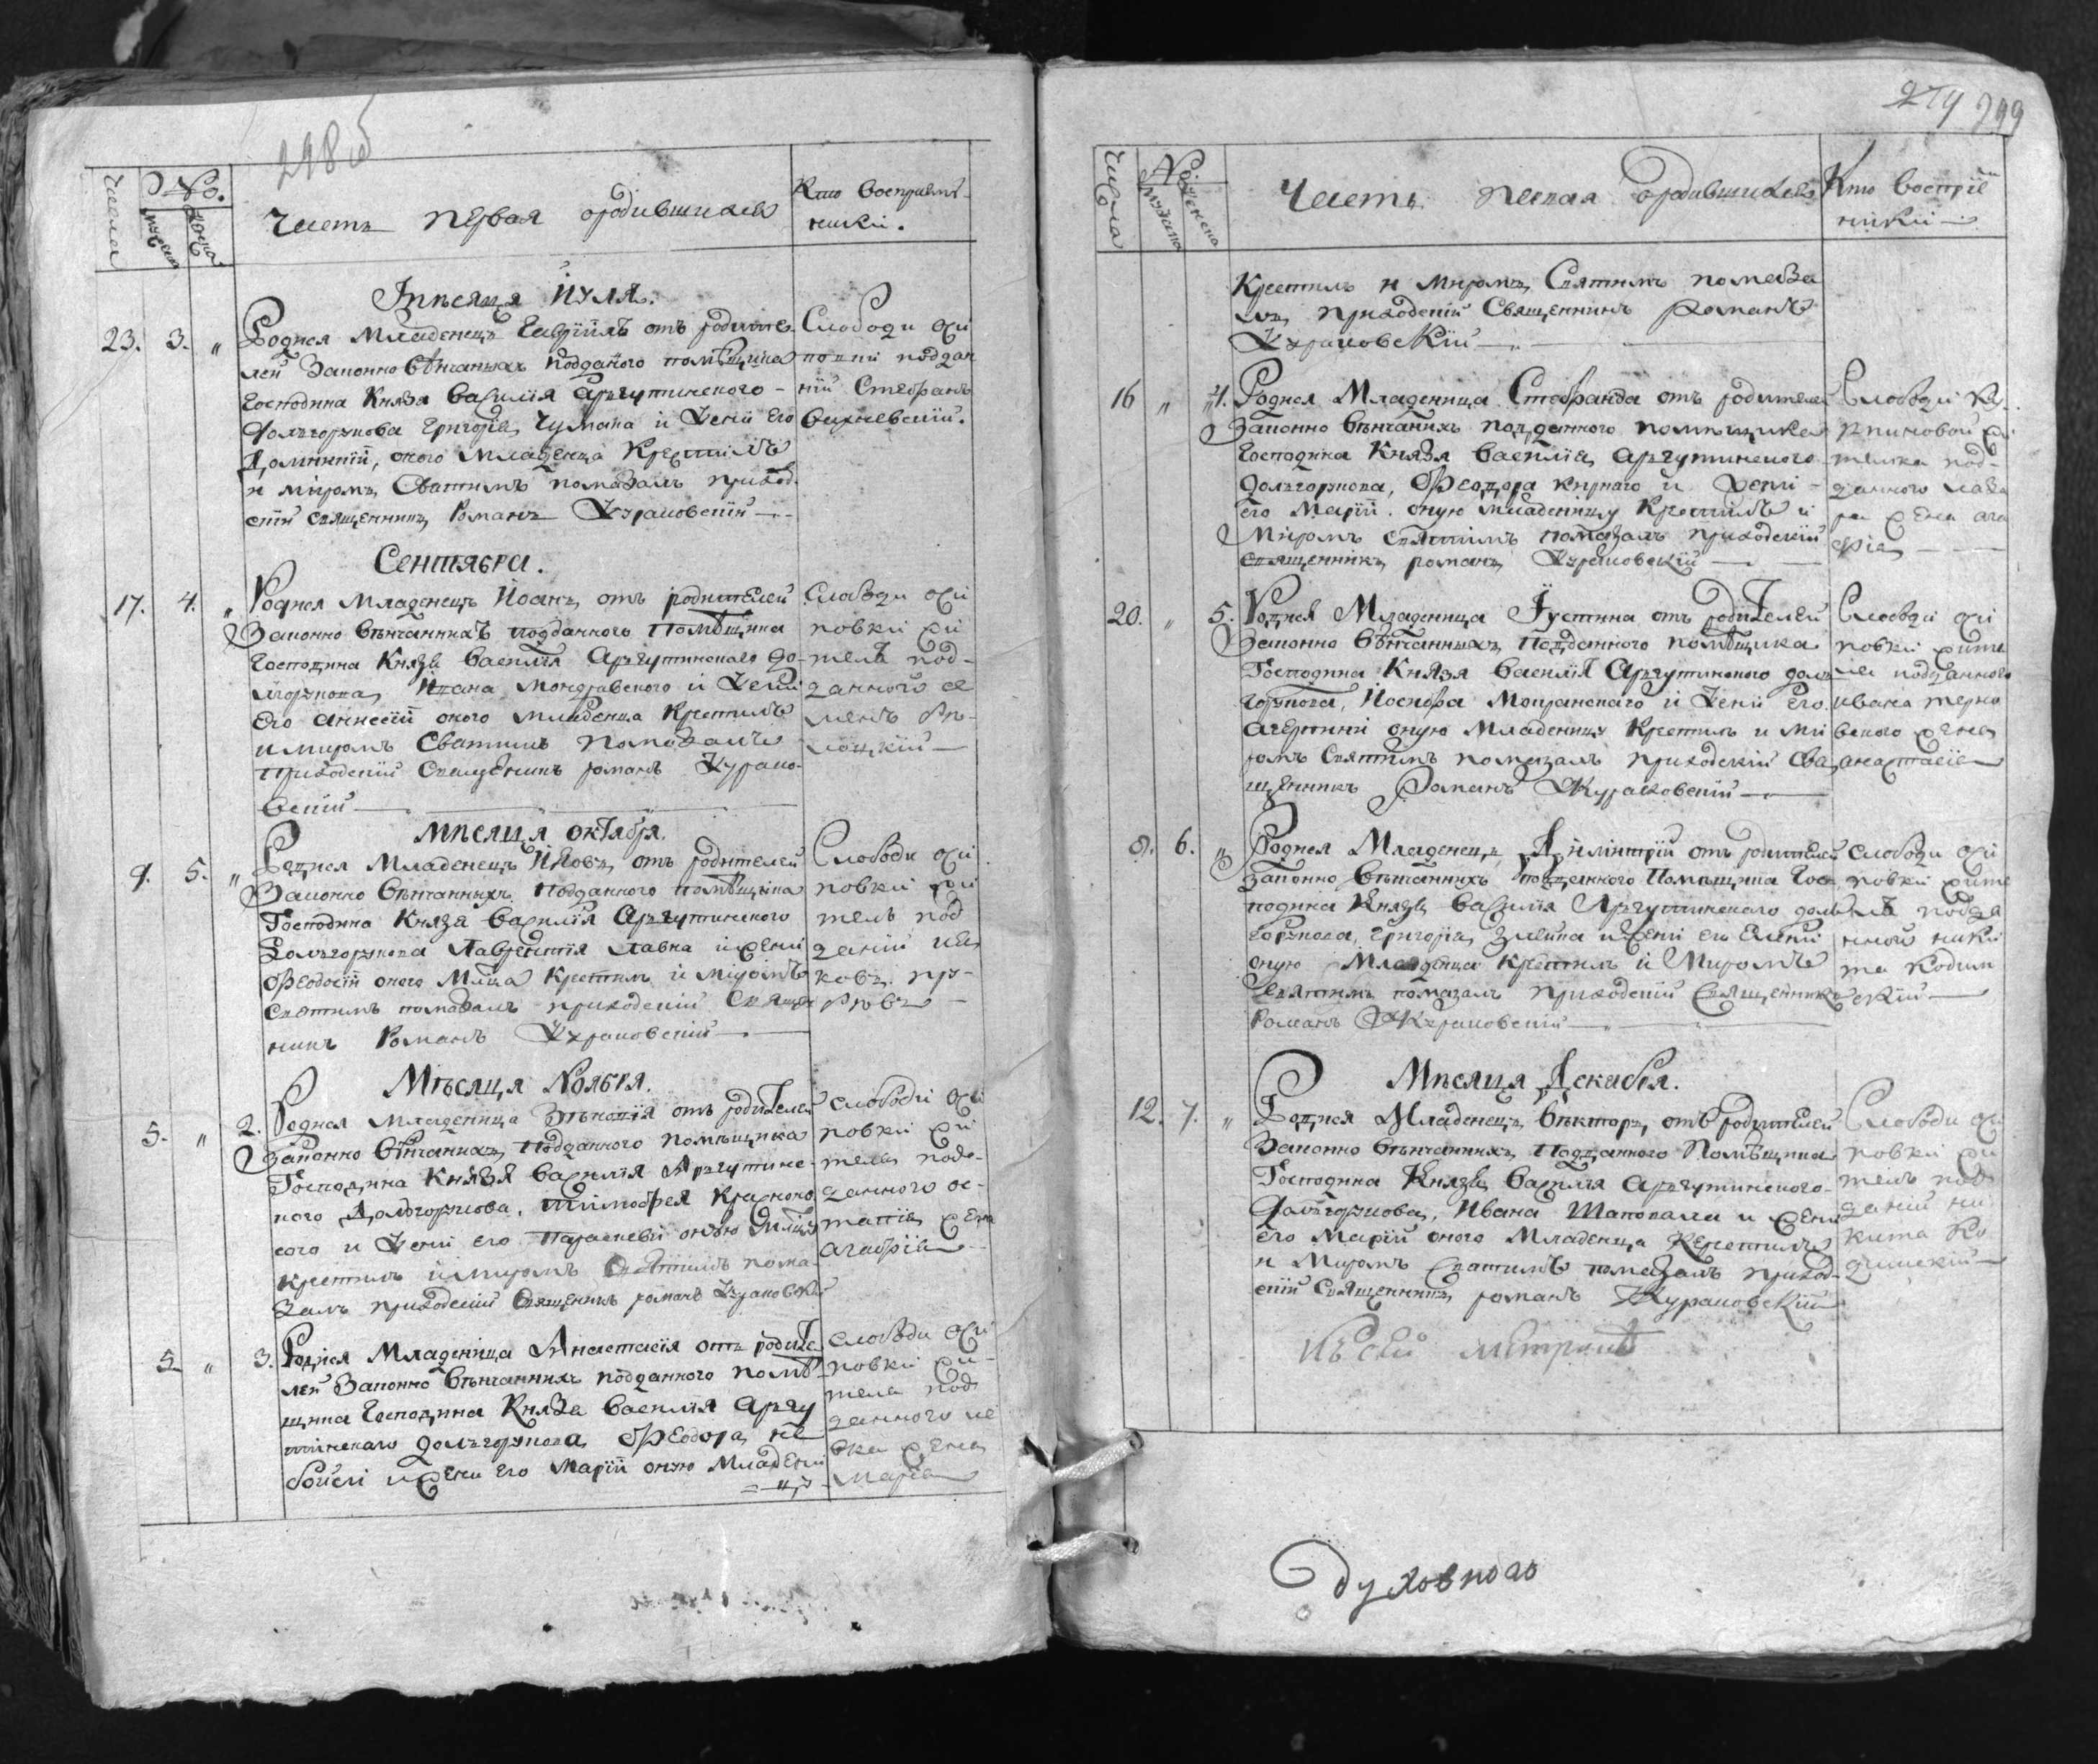 298 об
Числа
No.
мужеска
женска
Часть первая ородившихся
Кто восприем-
ники.
Мѣсяца Иуля.
23. 3. „
Родися Младенецъ Гавріилъ отъ родите-
лей Законно вѣнчанныхъ подданого помѣщика
Господина Князя василія аргутинского -
долъгорукова григорія Чумака и Жени Его
Домникіи, оного младенца Крестилъ
и міромъ Святимъ помазалъ приход-
скій священникъ Романъ Жураковскій
Слободи оси
повки поддан
ній Стефанъ
вишневскій.
Сентября.
17. 4. „
Родися Младенецъ Иоанъ отъ родителей
Законно вѣнчанныхъ подданого Помѣщика
Господина Князя василія Аргутинскаго до-
лгорукова, Ивана Мондравского и Жени
Его аннесіи оного младенца Крестилъ
и миромъ Святимъ помазалъ
приходскій Священикъ романъ Жураков-
вскій
Слободи оси
повки жи
тель под-
данного се
мѣсяца октября.
9. 5. „
Родися Младенецъ Ияковъ отъ родителей
Законно вѣнчанныхъ подданого помѣщика
Господина Князя василія Аргутинского
Долъгорукова Лаврентія Лавка и жени
Феодосіи оного Мл҃ца Крестилъ и миромъ
Святимъ помазалъ приходскій Священ
никъ Романъ Жураковскій
Слободи оси
повки жи
тель под
даній Ия
ковъ
Мѣсяца Ноября.
5. „ 2.
Родися младеница Зѣновія отъ родителей
Законно вѣнчанныхъ подданого помѣщика
Господина Князя василія Аргутинс-
кого Долгорукова, тимофея Красноко
сого и Жени его Параскевіи оную Мл҃цу
крестилъ и миромъ Святимъ пома-
залъ приходскій Священикъ романъ Жураковскій
слободи оси
повки жи
теля под-
данного ос-
тапія жена
агафія
5. „ 3.
Родися Младеница Анастасія отъ родите
лей Законно вѣнчанныхъ подданого помѣ-
щика Господина Князя василія Аргу
тинскаго долъгорукова Феодора не
и жени его Маріи оную Младени
цу
слободи оси
повки жи-
теля под
данного
жена
марія
274 299
Числа
No.
мужеска
женска
Часть первая ородившихся
Кто воспріем
ники
Крестилъ и Миромъ Святимъ помаза
лъ приходскій Священникъ Романъ
Жураковскій
16 „ 4.
Родися Младеница Стефанида отъ родителей
Законно вѣнчанихъ подданного помѣщика
Господина Князя василія Аргутинского
долъгорукова, Феодора кирнаго и жени
его Маріи. оную младеницу Крестилъ и
Миромъ святимъ помазалъ приходскій
священникъ романъ Жураковскій
Слободи
жи
теля под-
данного
ра жена ага
фія
20. „ 5.
Родися Младеница Іустина отъ родителей
Законно вѣнчанныхъ подданного помѣщика
Господина Князя василія Аргутинского долъ
горукова, Иосифа Мокранскаго и Жени Его
агерпини оную Младеницу Крестилъ и ми
ромъ Святимъ помазалъ приходскій Свя
щенникъ Романъ Жураковскій
Слободи оси
повки жите
ля подданного
ивана терно
вского жена
анастасія
9. 6. „
Родися Младенецъ Димитрій отъ родителей
законно вѣнчанихъ подданного Помѣщика Гос
подина Князя василія Аргутинскаго долъ
горукова, Григорія Змеина и жени его Елени
оную Младенца крестилъ и Миромъ
святимъ помазалъ приходскій Священникъ
Романъ Жураковскій
слободи оси
повки жите
ль подда
нной ники
та Кодин
скій
Мѣсяца Декабря.
12. 7. „
Родися Младенецъ Вѣкторъ отъ родителей
Законно вѣнчанныхъ Подданного Помѣщика
Господина Князя василія аргутинского
Долъгорукова, Ивана Шаповала и жени
его Маріи оного Младенца Крестилъ
и Миромъ святимъ помазалъ приход-
скій Священникъ романъ Жураковскій
Слободи оси
повки жи
тель под
даній ни
кита Ко
динскій
Къ сей метрикѣ
духовного